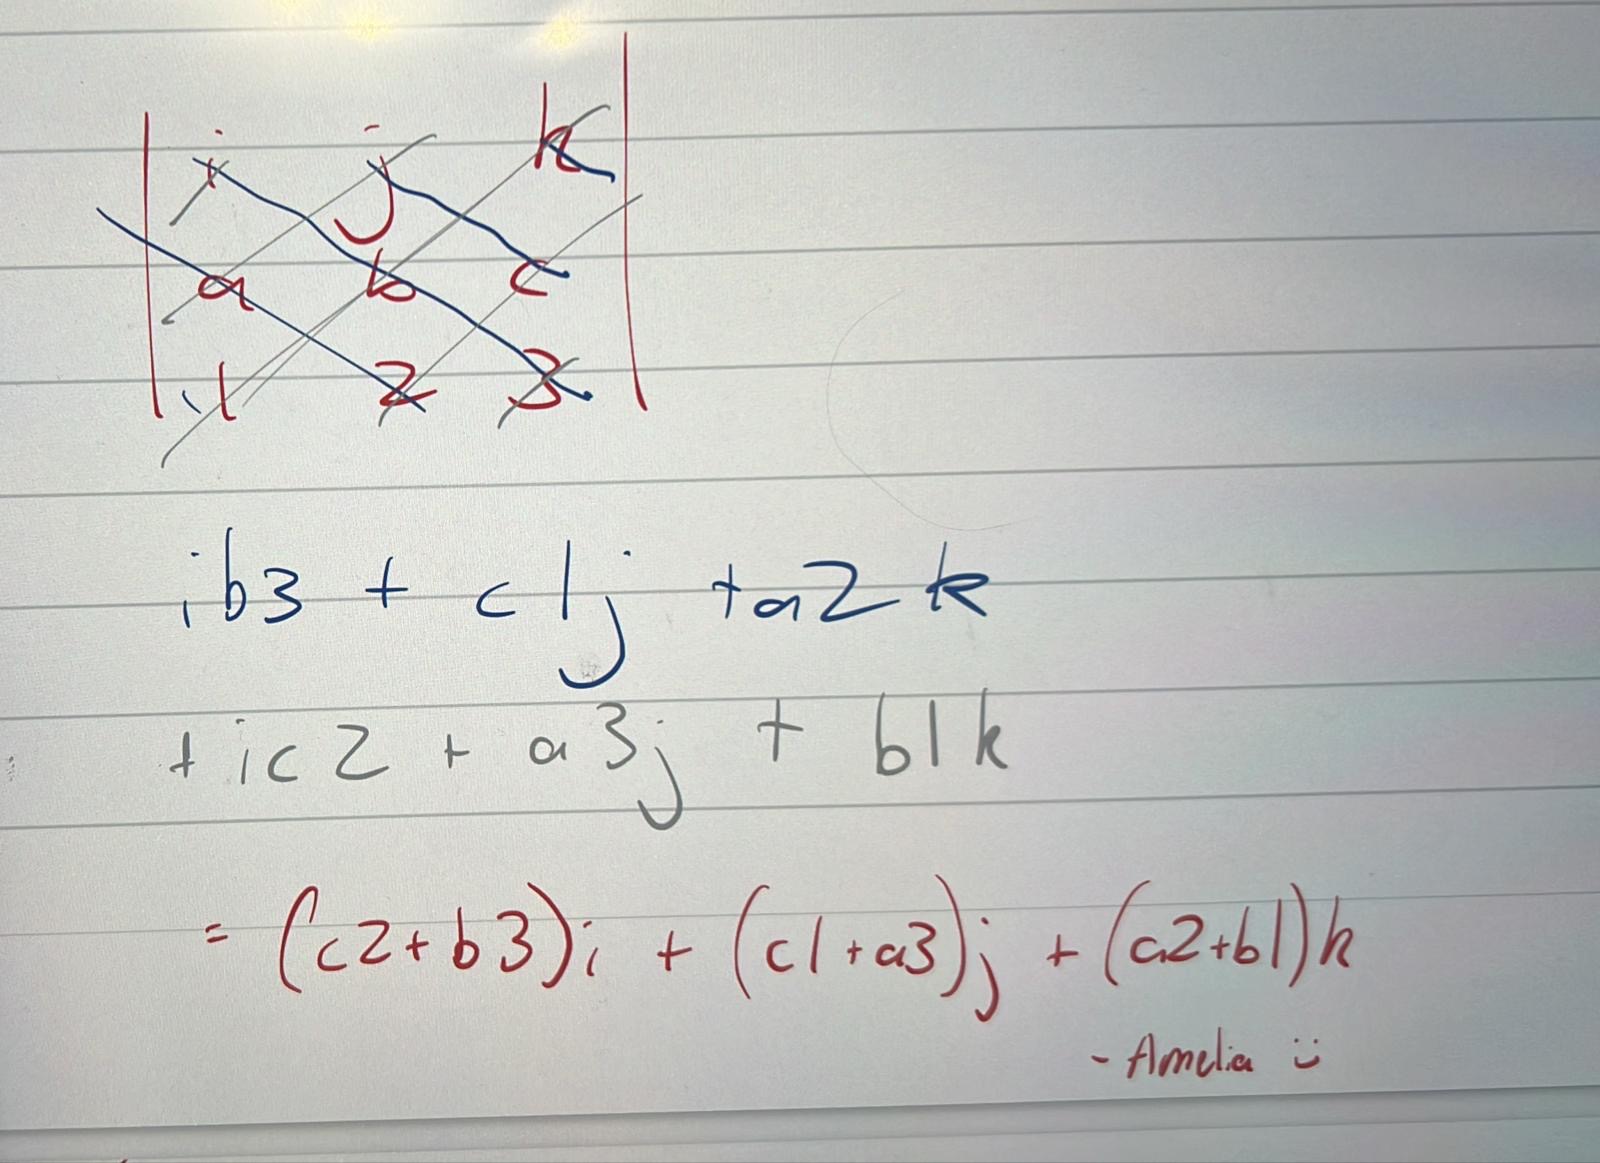 | i j k |
| a b c |
| 1 2 3 |
ib3 + c1j + a2k
+ ic2 + a3j + b1k
= (c2+b3)i + (c1+a3)j + (a2+b1)k
- Amelia :)